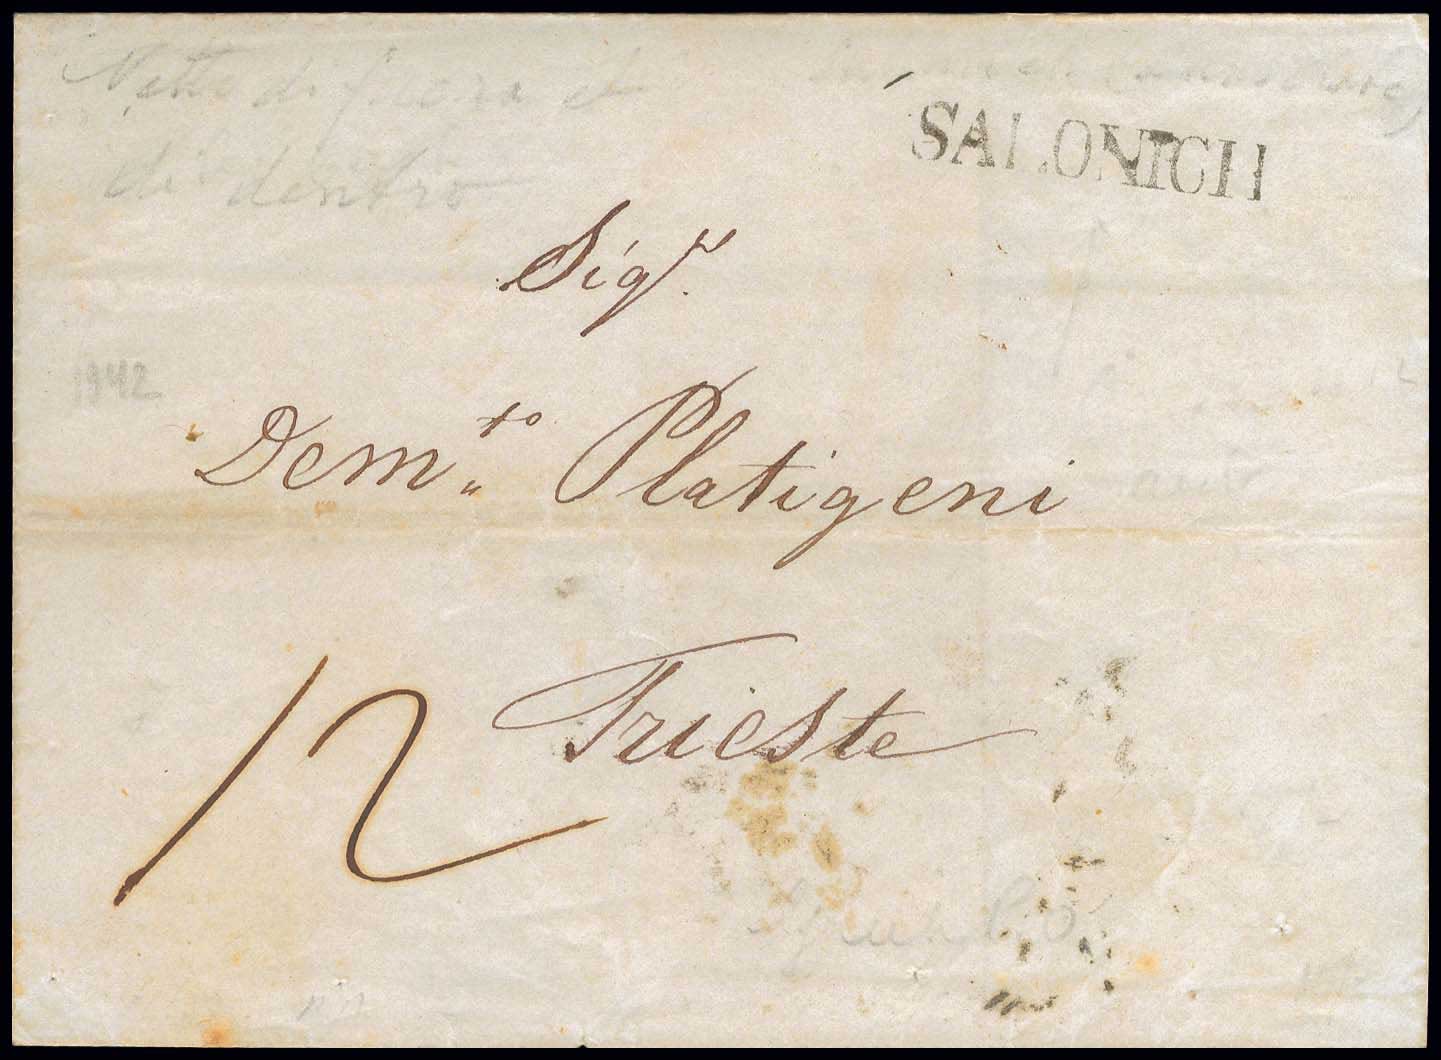 Netto di fuora et
di dentro
SALONICH
Sigr.
1942
Demto Platigeni
Trieste
12